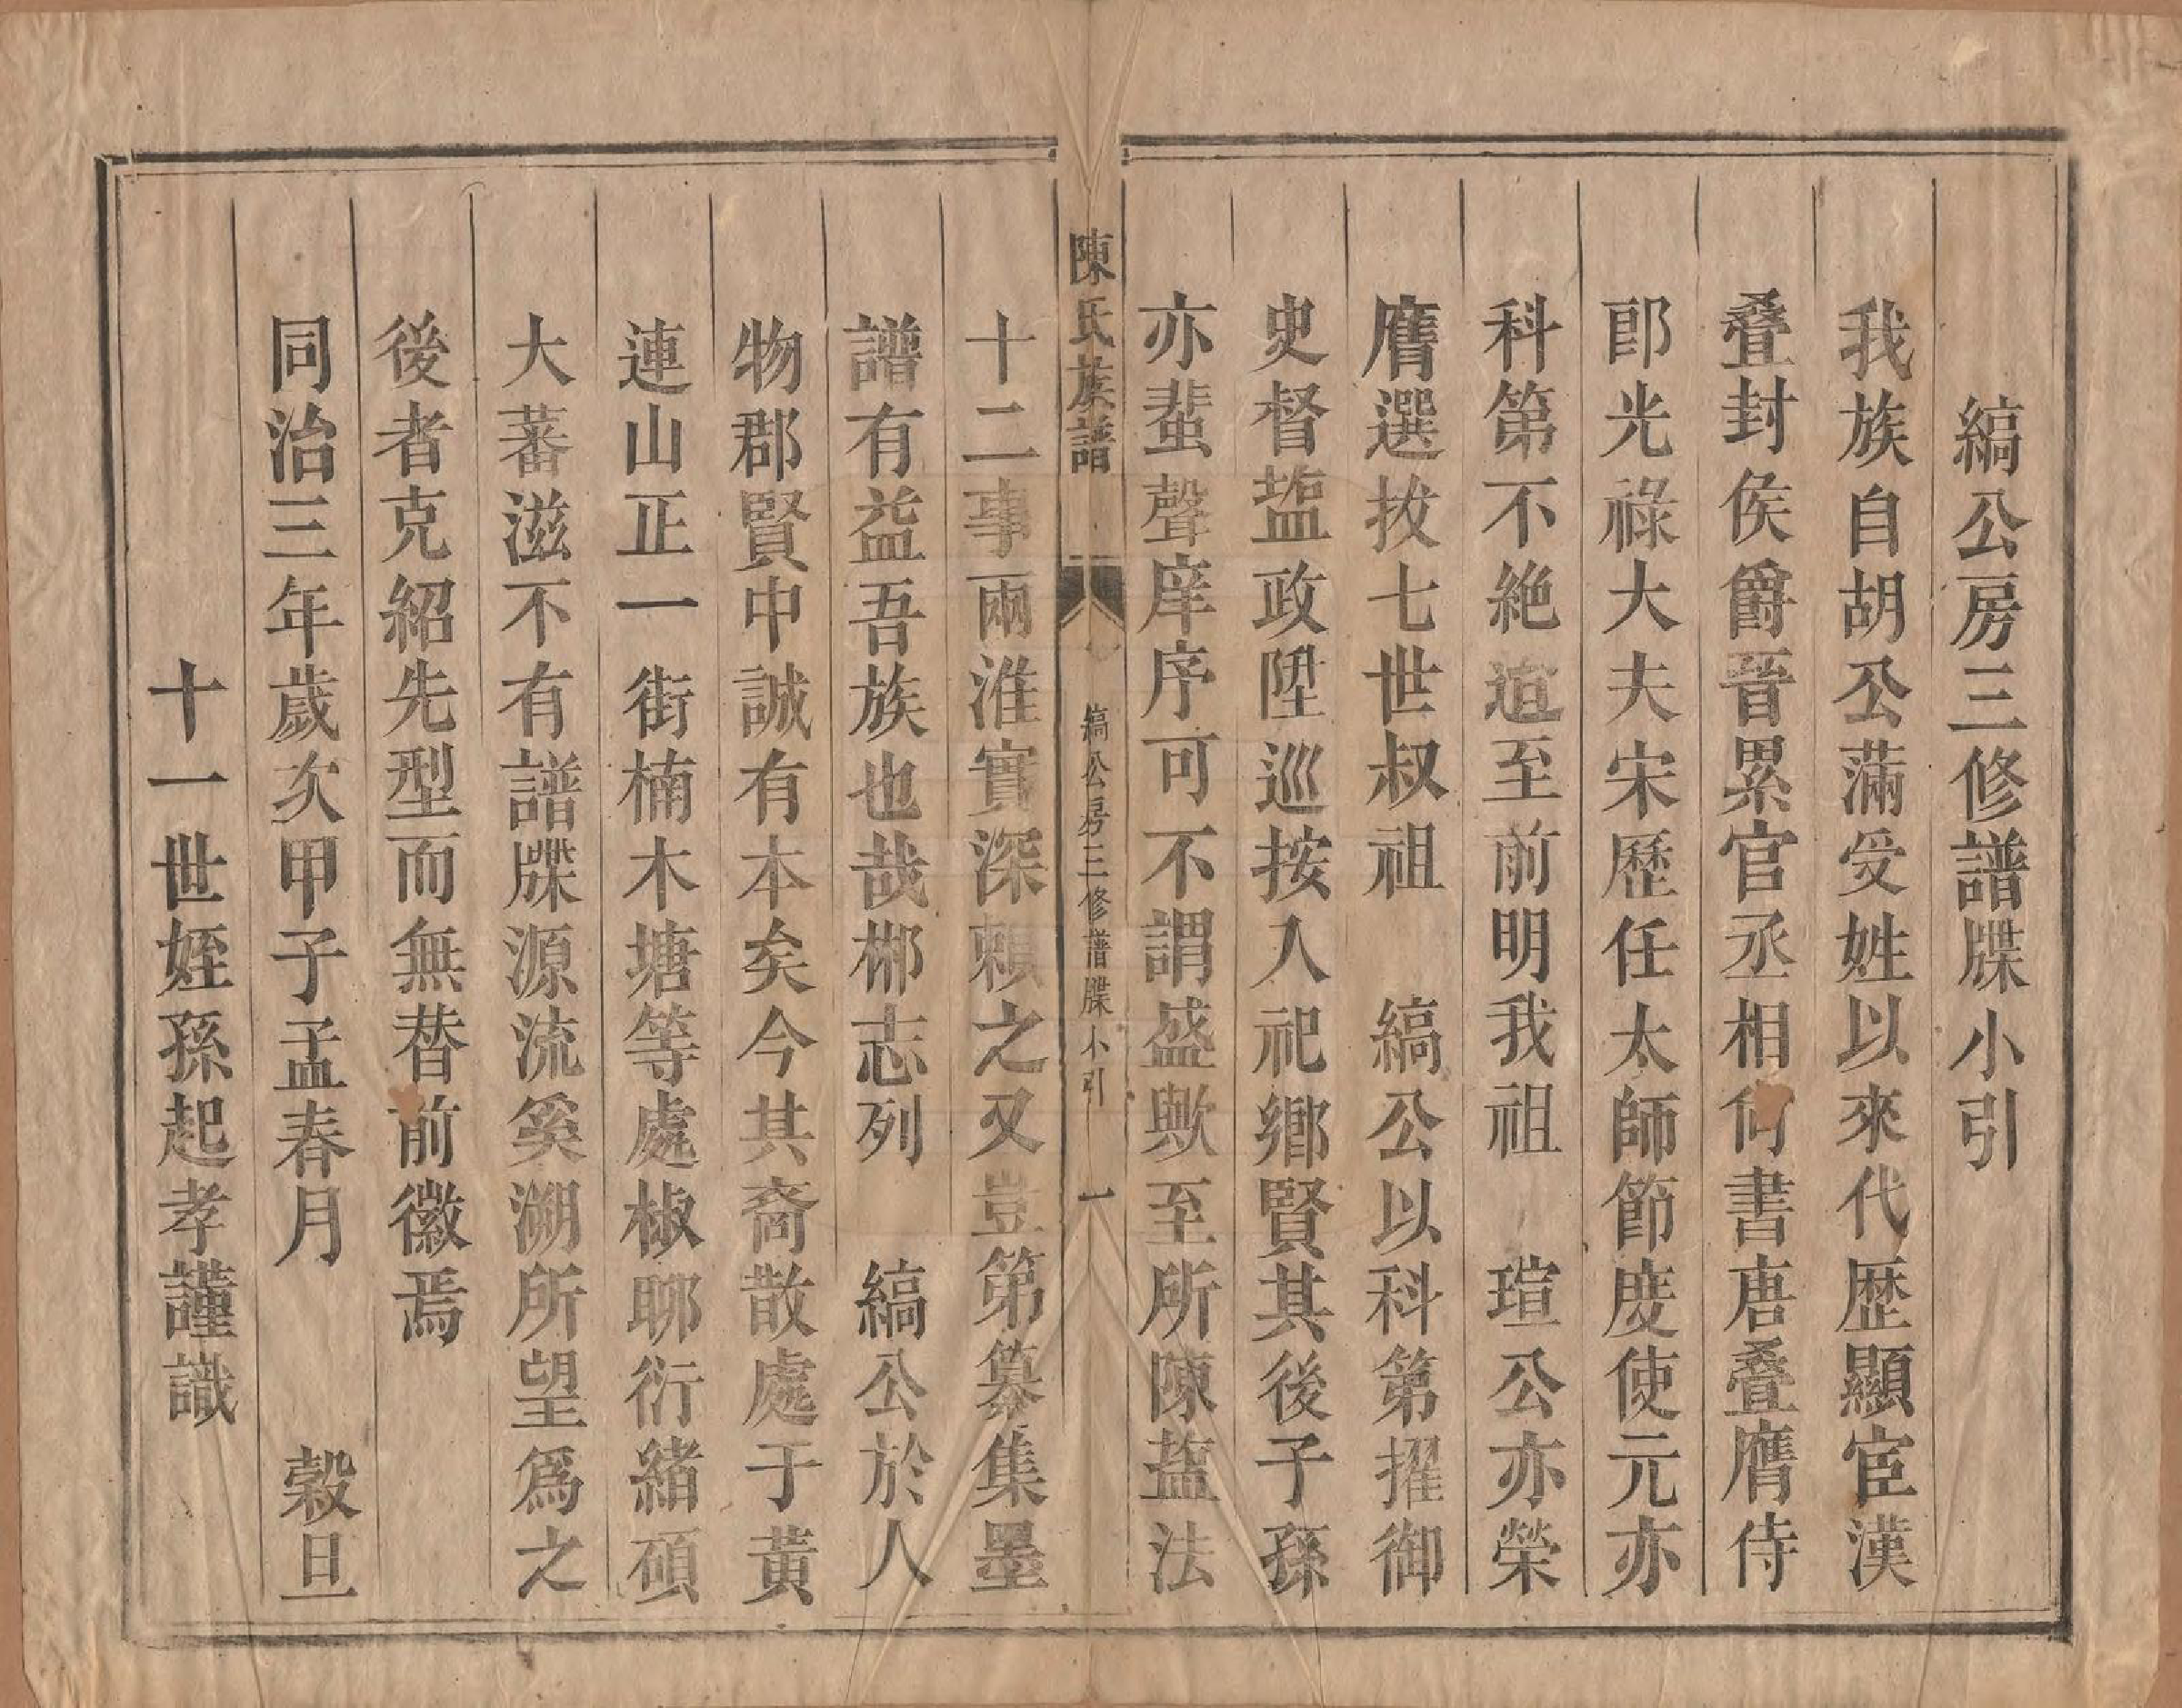 縞公房三修譜牒小引
我族自胡公滿受姓以來代歴顯宦漢
叠封侯爵晉累官丞相尙書唐叠膺侍
郎光祿大夫宋歷任太師節度使元亦
科第不絶迨至前明我祖 瑄公亦榮
膺選抜七世叔祖 縞公以科第擢御
史督塩政陞巡按入祀鄉賢其後子孫
亦蜚聲庠序可不謂盛歟至所陳塩法
陳氏族譜 縞公房三修譜牒小引 一
十二事兩淮實深賴之又豈第纂集墨
譜有益吾族也哉郴志列 縞公於人
物郡賢中誠有本矣今其裔散處于黃
連山正一街楠木塘等處椒聊衍緒碩
大蕃滋不有譜牒源流奚溯所望爲之
後者克紹先型而無替前徽焉
同治三年歲次甲子孟春月 穀旦
十一世姪孫起孝謹識